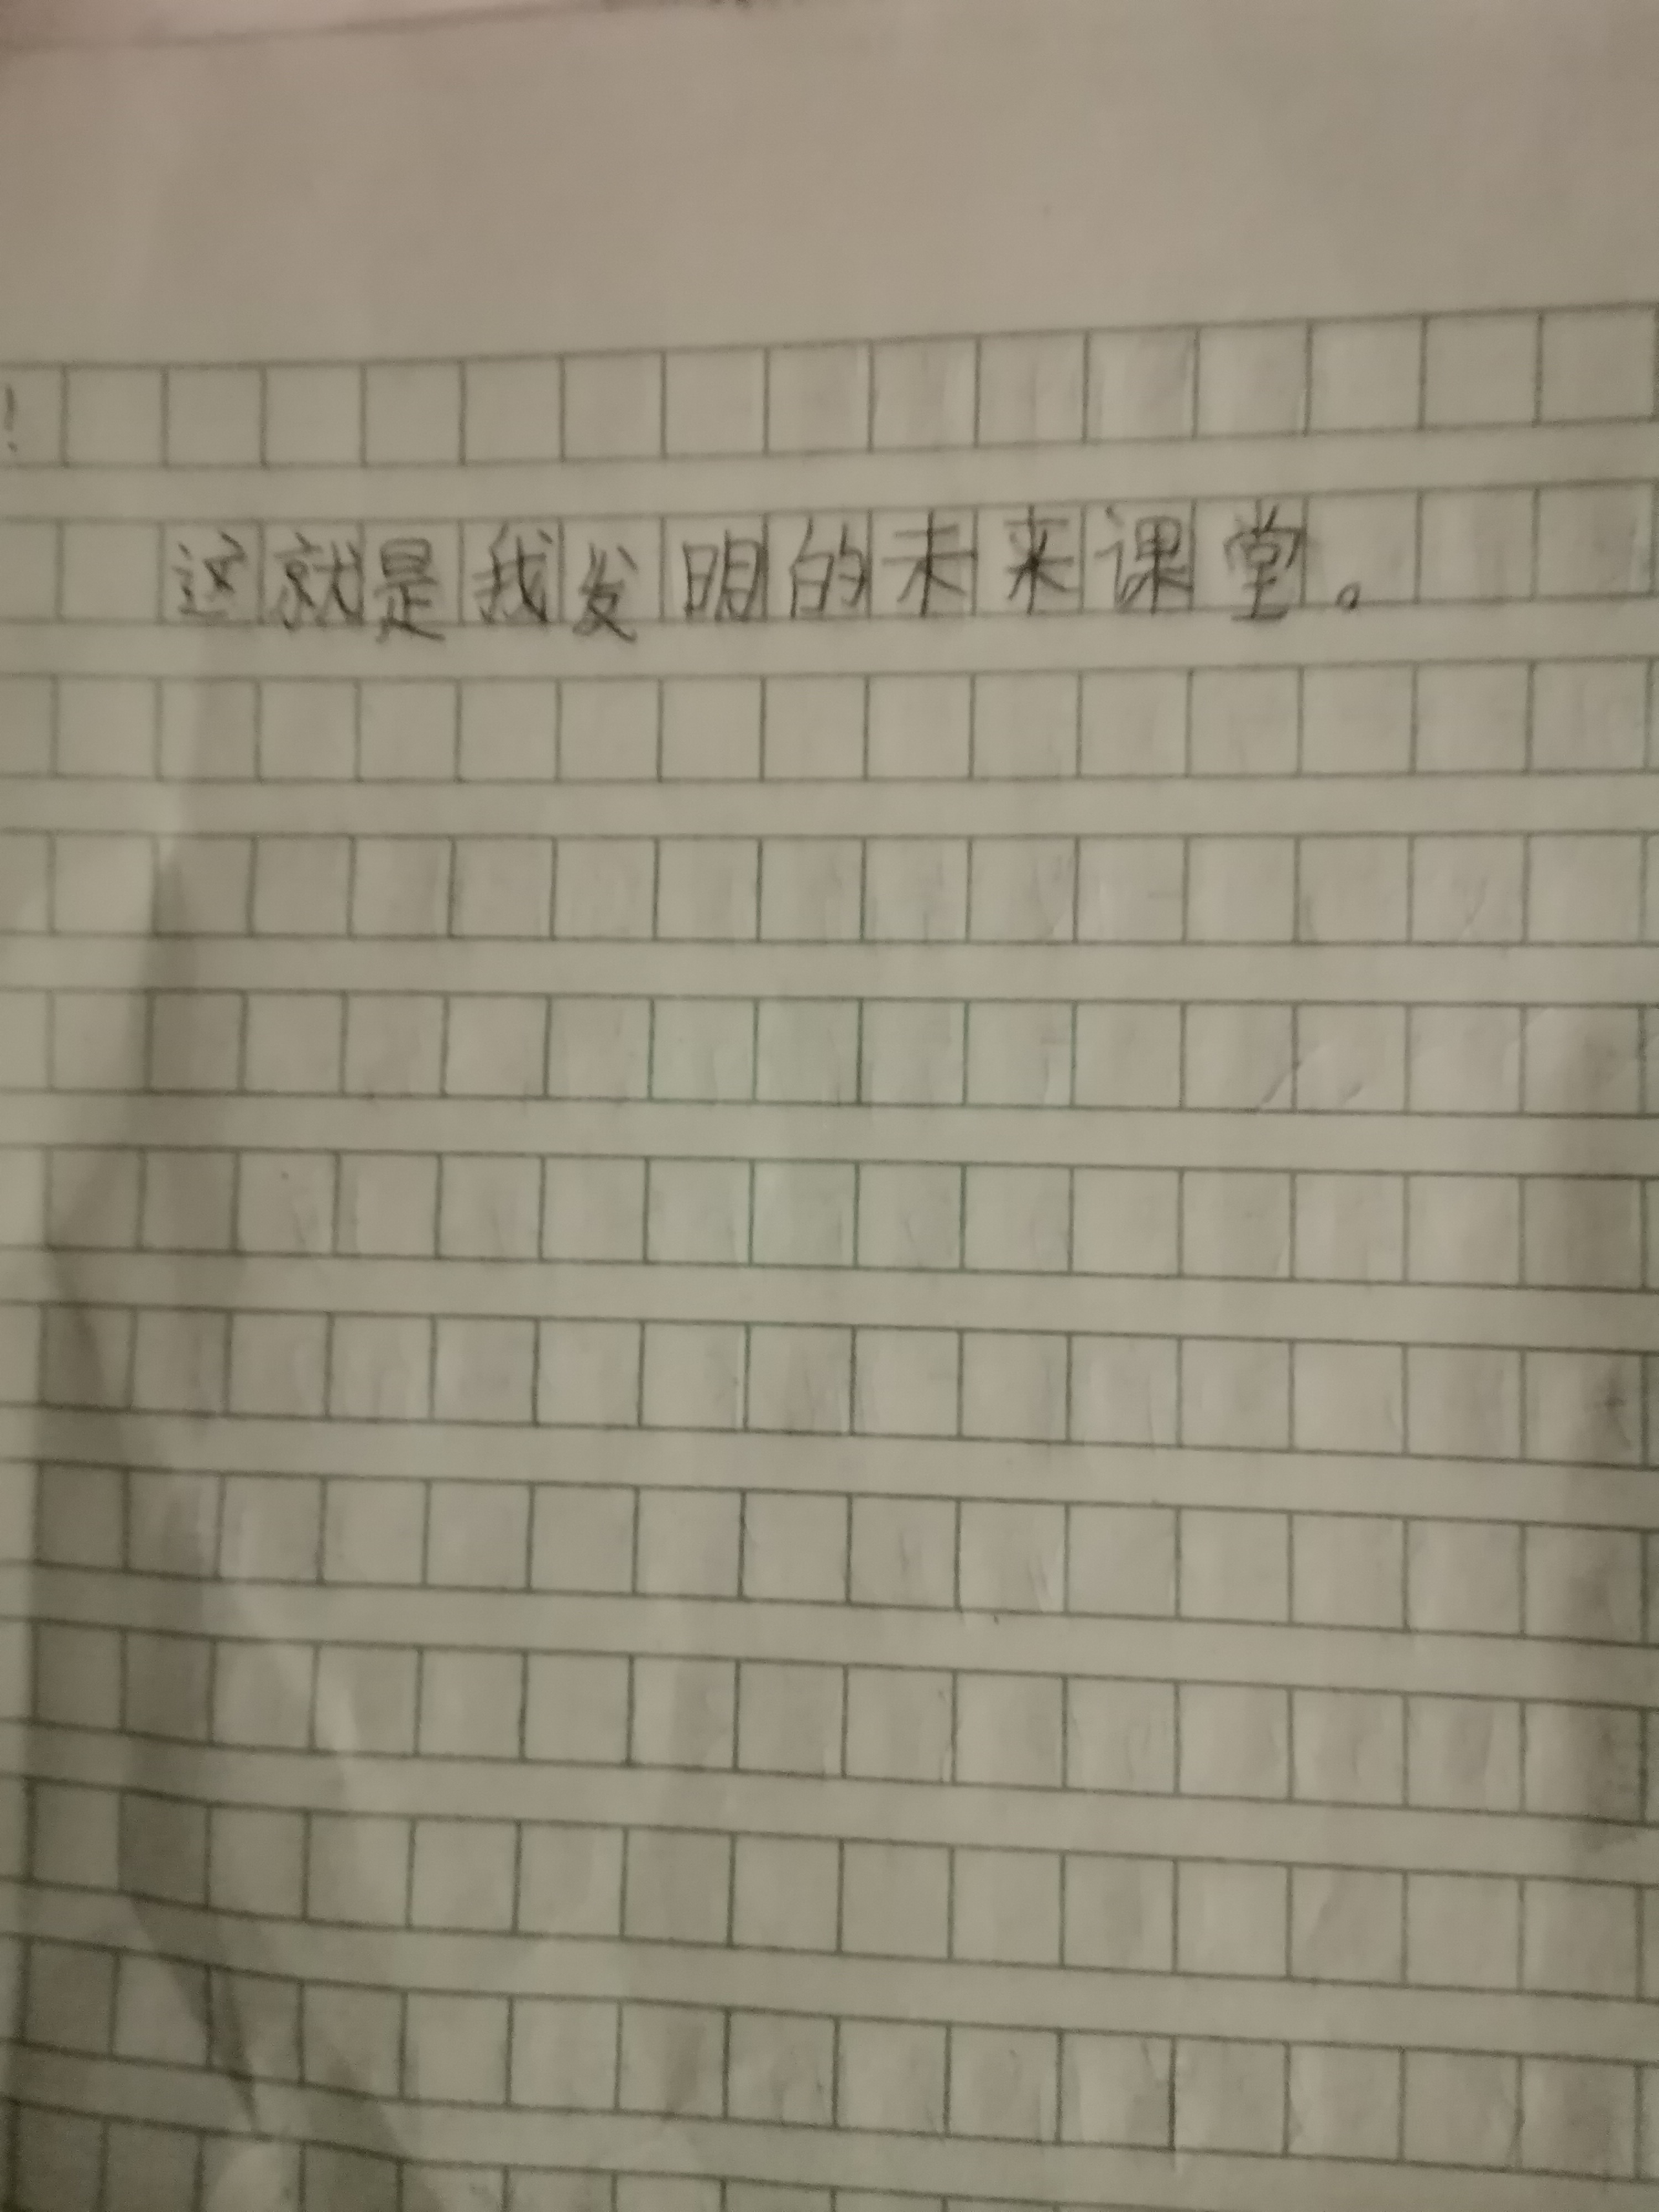 !
这就是我发明的未来课堂。